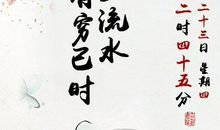 二十三日 星期四
二时四十五分
流水
有穷已时